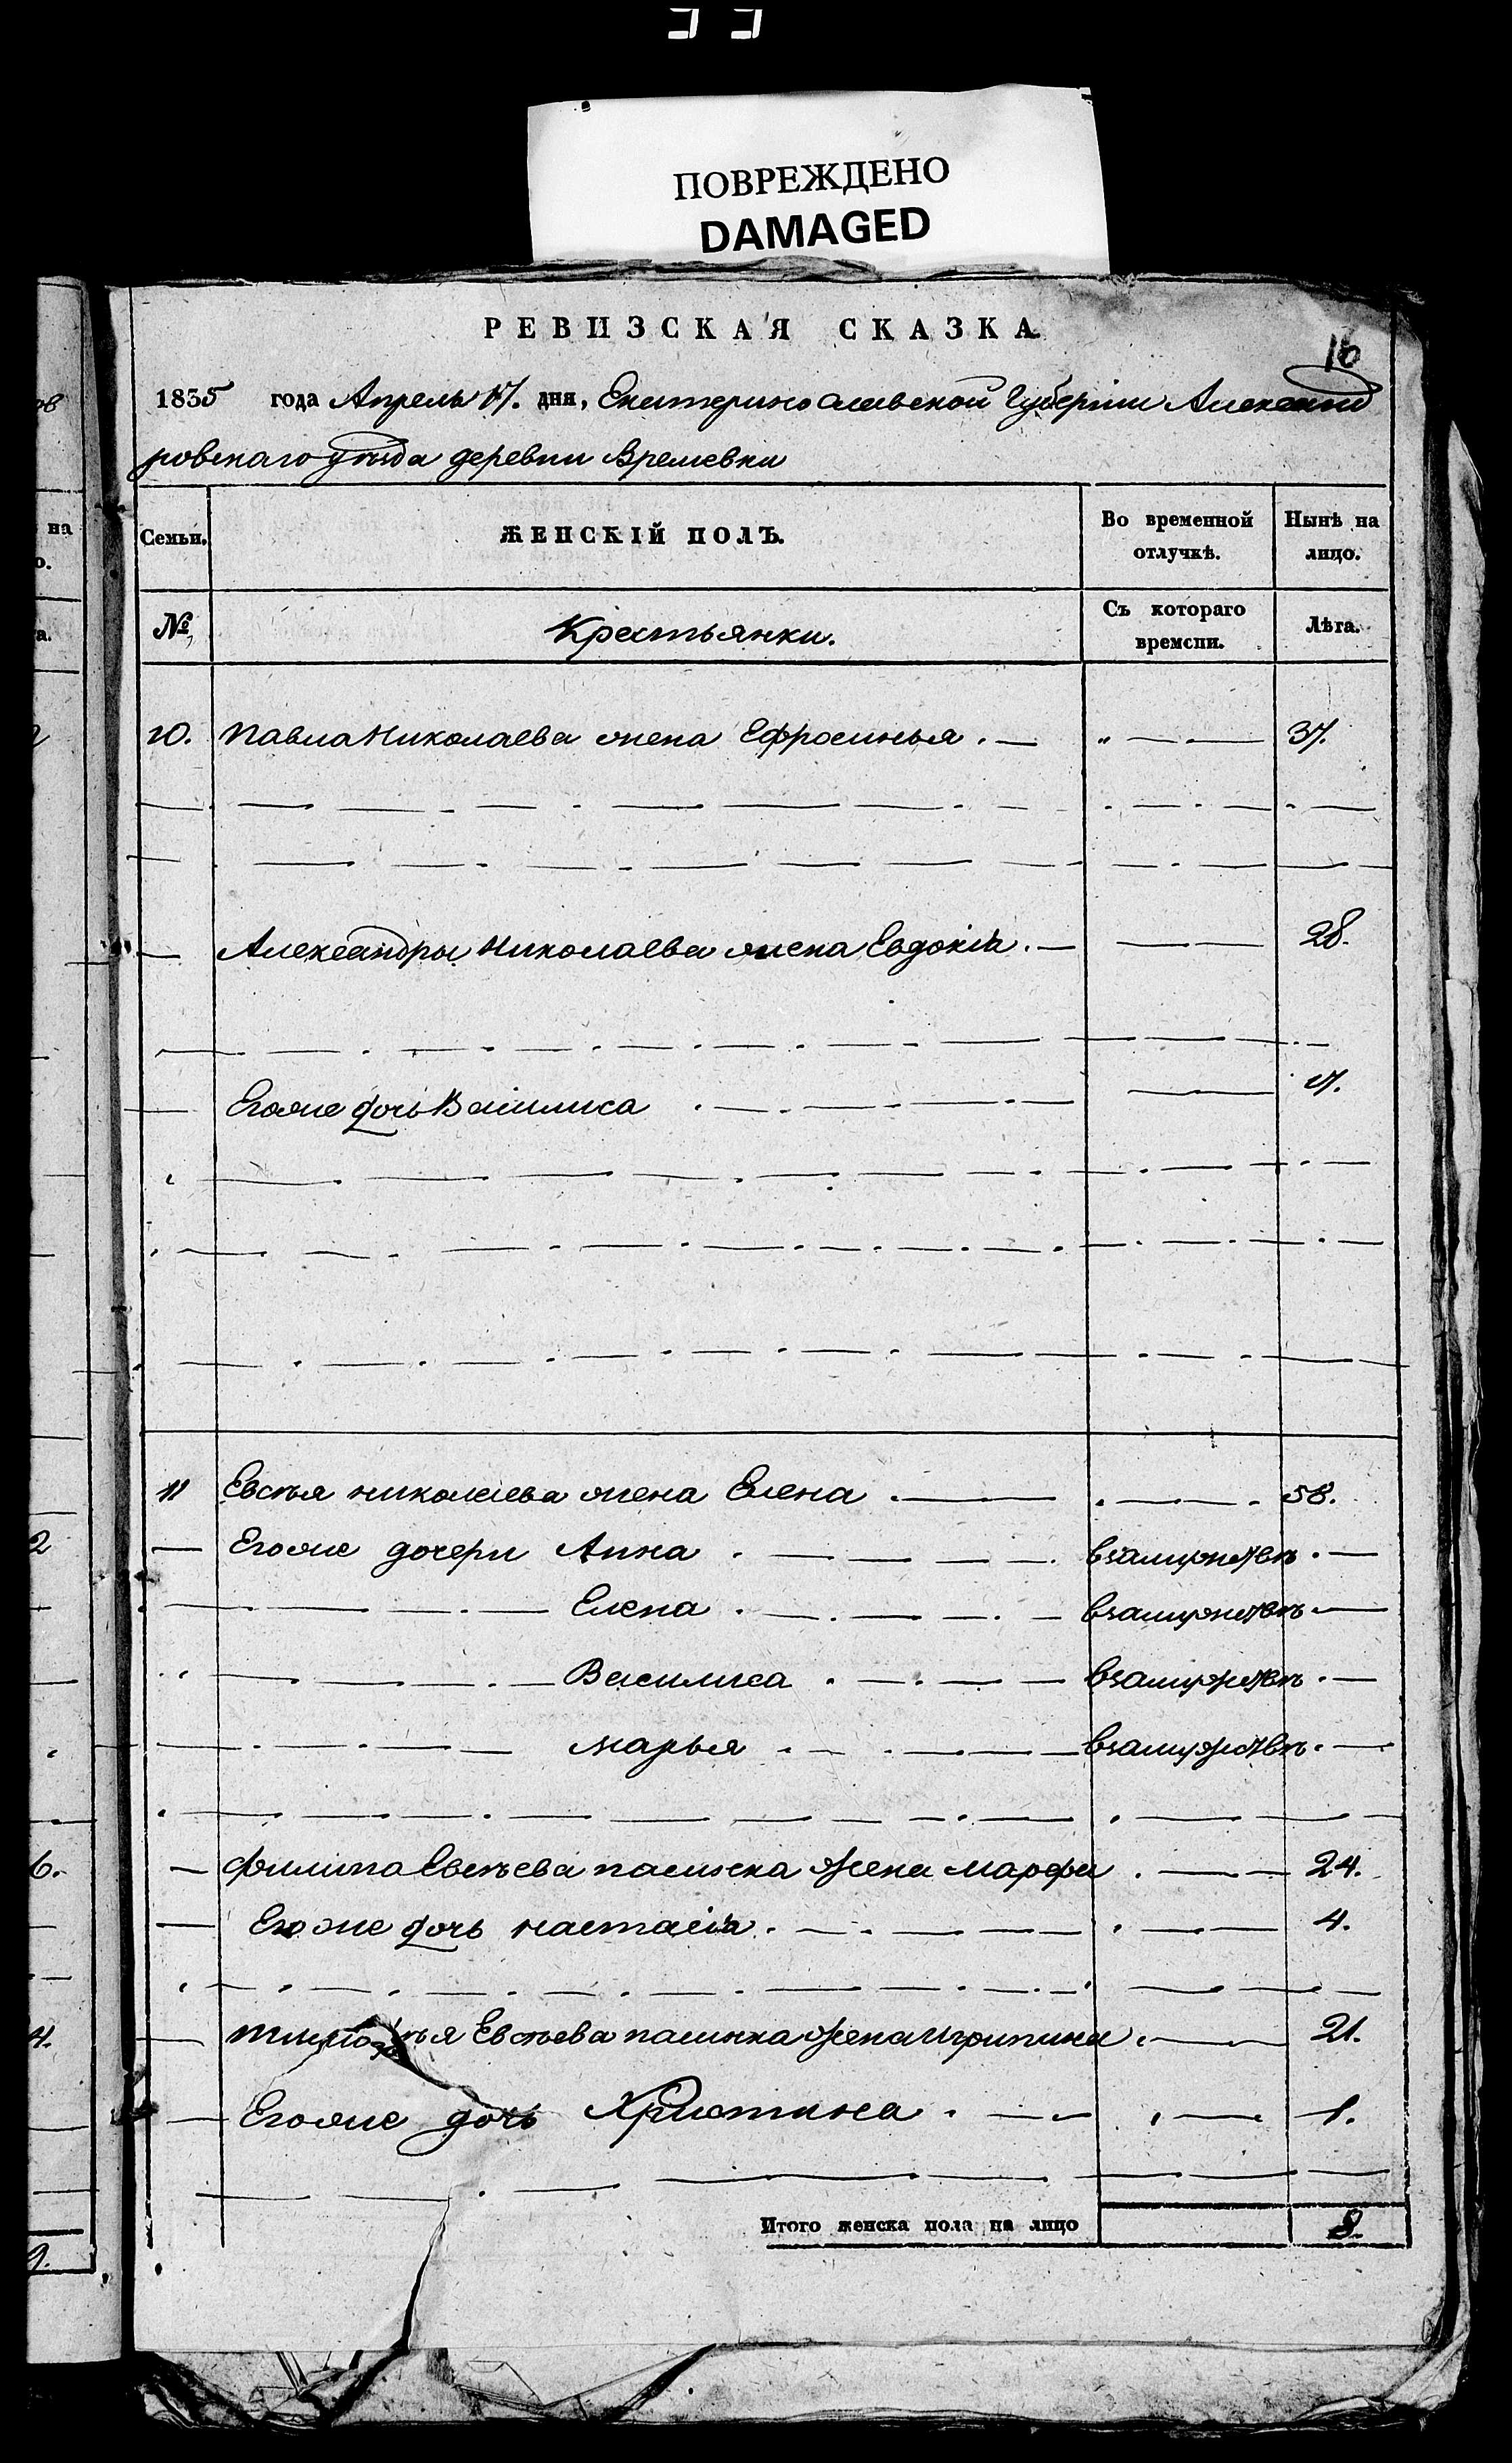 ПОВРЕЖДЕНО
DAMAGED
РЕВИЗСКАЯ СКАЗКА.
16
1835 года Апрель 17. дня, Екатеринославской Губернии Александ
ровскаго уѣзда деревни Времевки
Семьи. ЖЕНСКІЙ ПОЛЪ. Во временной отлучкѣ. Нынѣ на лицо.
№ Крестьянки. Съ котораго времени. Лѣта.
10. Павла Николаева жена Ефросинья. — " — 37.
— Александры Николаева жена Евдокія. — 28.
— Егоже дочь Василиса . — 7.
11 Евсѣя николаева жена Елена . — 58.
— Егоже дочери Анна . — взамужствѣ . —
Елена . — взамужствѣ —
Василиса . — взамужствѣ . —
марья . — взамужствѣ . —
— филипа Евсѣева пасынка жена марфа . — 24.
— Егоже дочь настасія . — 4.
— Евсѣева пасынка жена Игрипина . — 21.
— Егоже дочь Христина . — 1.
Итого женска пола на лицо 8.